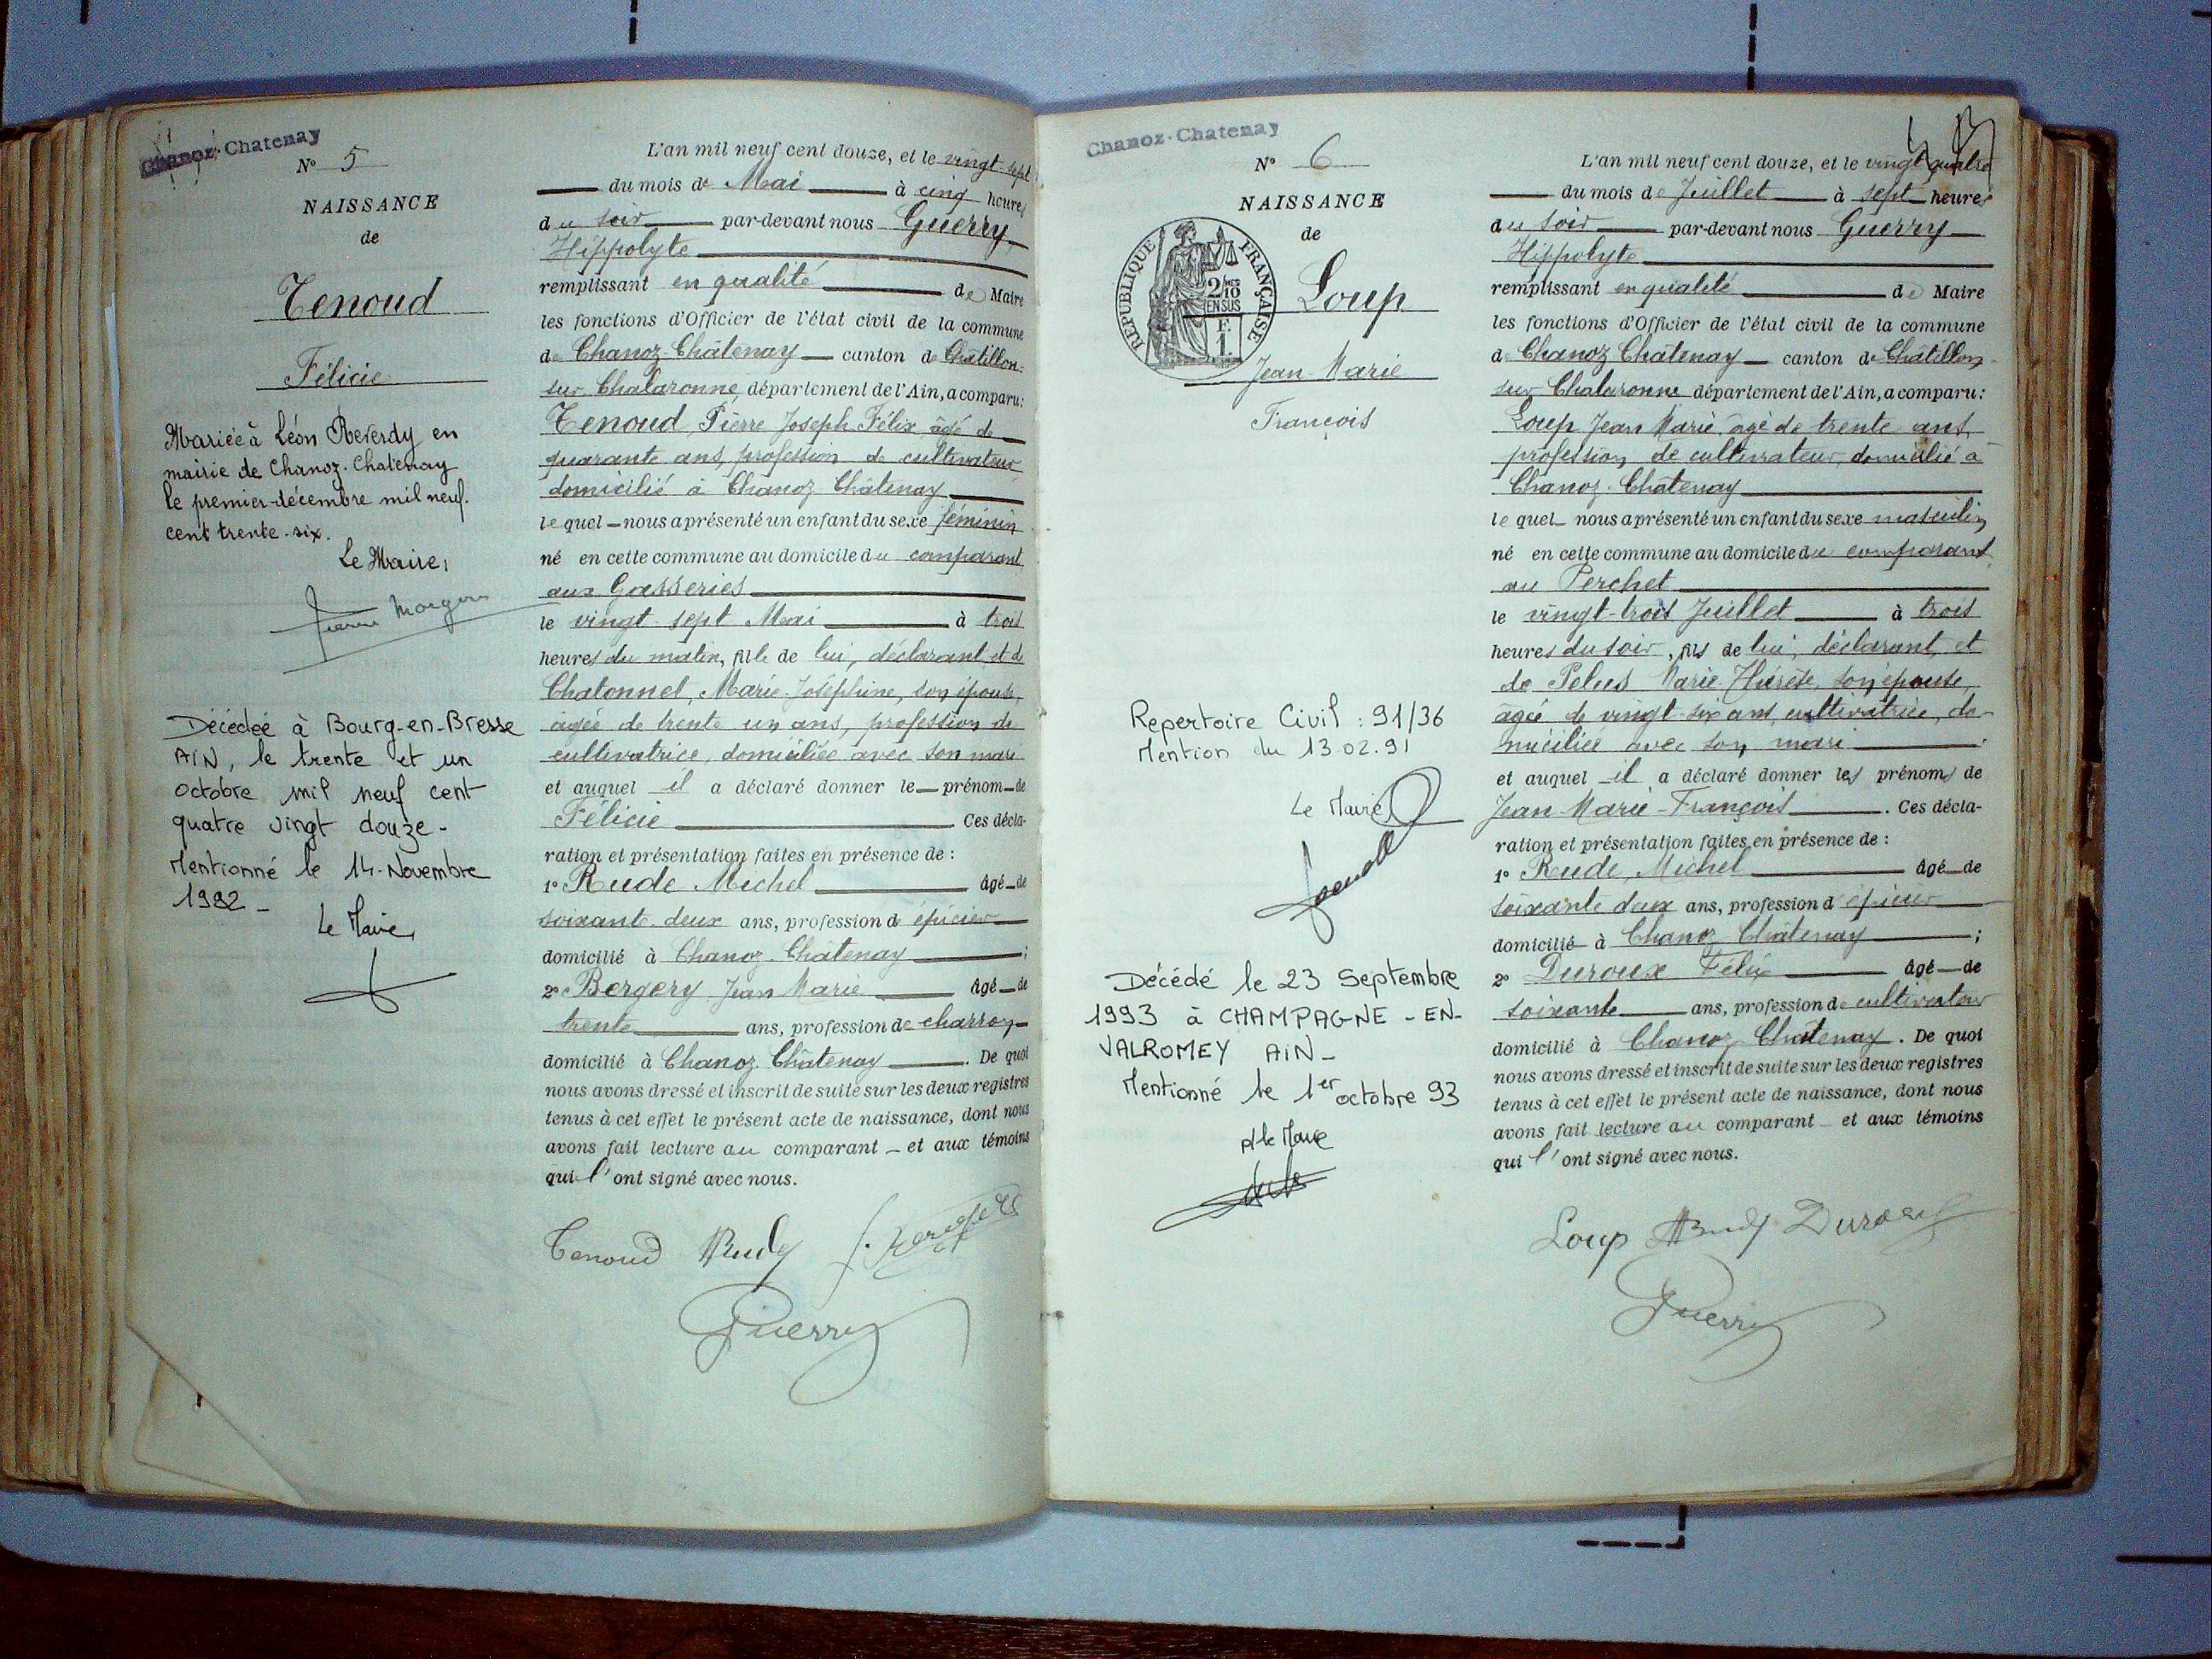 Chanoz-Chatenay
N° 5
NAISSANCE
de
Tenoud
Félicie
Mariée à Léon Reverdy en
mairie de Chanoz-Chatenay
le premier décembre mil neuf
cent trente-six.
Le Maire,
Décédée à Bourg-en-Bresse
AIN, le trente et un
octobre mil neuf cent
quatre vingt douze -
Mentionné le 14 Novembre
1992 -
Le Maire,
L'an mil neuf cent douze, et le vingt-sept
du mois de Mai à cinq heures
du soir par-devant nous Guerry
Hippolyte
remplissant en qualité de Maire
les fonctions d'Officier de l'état civil de la commune
de Chanoz-Châtenay canton de Châtillon-
sur Chalaronne, département de l'Ain, a comparu:
Tenoud, Pierre Joseph Félix, âgé de
quarante ans, profession de cultivateur
domicilié à Chanoz Châtenay
lequel nous a présenté un enfant du sexe féminin
né en cette commune au domicile du comparant
aux Gasseries
le vingt-sept Mai à trois
heures du matin, fille de lui, déclarant et de
Chatonnet, Marie-Joséphine, son épouse,
âgée de trente un ans, profession de
cultivatrice, domiciliée avec son mari
et auquel il a déclaré donner le prénom de
Félicie Ces décla-
ration et présentation faites en présence de :
1° Rude Michel âgé de
soixante-deux ans, profession d épicier
domicilié à Chanoz-Châtenay ;
2° Bergery Jean Marie âgé de
trente ans, profession de charron
domicilié à Chanoz Châtenay. De quoi
nous avons dressé et inscrit de suite sur les deux registres
tenus à cet effet le présent acte de naissance, dont nous
avons fait lecture au comparant et aux témoins
qui l'ont signé avec nous.
Tenoud Rude
Guerry
Chanoz-Chatenay
N° 6
NAISSANCE
de
RÉPUBLIQUE FRANÇAISE
2/10
EN SUS
F.
1.
Loup
Jean-Marie
François
Repertoire Civil : 91/36
Mention du 13.02.91
Le Maire
Décédé le 23 Septembre
1993 à CHAMPAGNE-EN-
VALROMEY AIN -
Mentionné le 1er octobre 93
P/le Maire
L'an mil neuf cent douze, et le vingt-quatre
du mois de Juillet à sept heures
du soir par-devant nous Guerry
Hippolyte
remplissant en qualité de Maire
les fonctions d'Officier de l'état civil de la commune
de Chanoz Châtenay canton de Châtillon-
sur Chalaronne département de l'Ain, a comparu:
Loup Jean Marie, âgé de trente ans,
profession de cultivateur, domicilié à
Chanoz-Châtenay
lequel nous a présenté un enfant du sexe masculin
né en cette commune au domicile du comparant,
au Perchet
le vingt-trois Juillet à trois
heures du soir, fils de lui, déclarant, et
de Pelus Marie Thérèse, son épouse,
âgée de vingt-six ans, cultivatrice, do-
miciliée avec son mari
et auquel il a déclaré donner les prénoms de
Jean-Marie-François. Ces décla-
ration et présentation faites en présence de :
1° Rude, Michel âgé de
soixante deux ans, profession d'épicier
domicilié à Chanoz Châtenay ;
2° Duroux Félix âgé de
soixante ans, profession de cultivateur
domicilié à Chanoz Châtenay. De quoi
nous avons dressé et inscrit de suite sur les deux registres
tenus à cet effet le présent acte de naissance, dont nous
avons fait lecture au comparant et aux témoins
qui l'ont signé avec nous.
Loup Rude Duroux
Guerry